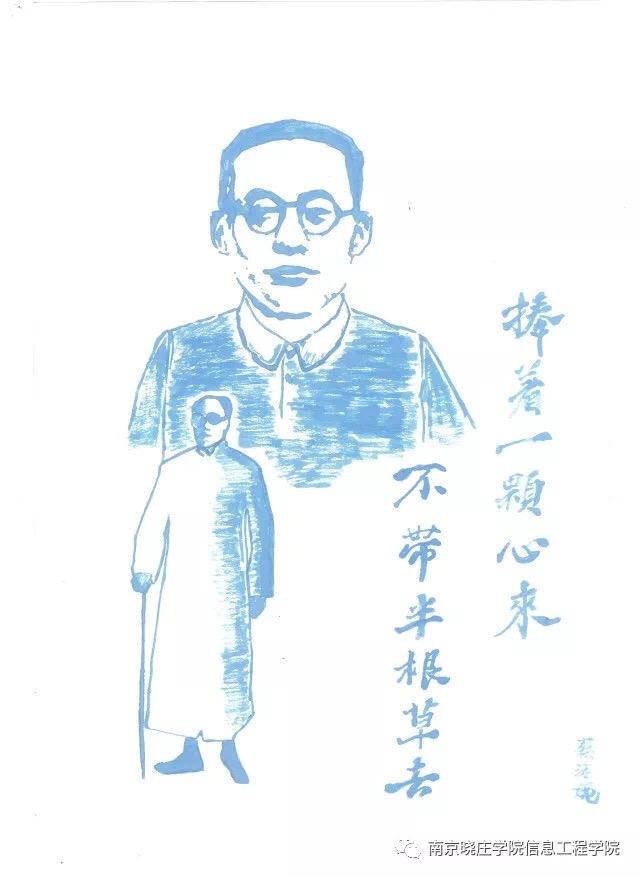 捧着一颗心來
不带半根草去
南京晓庄学院信息工程学院